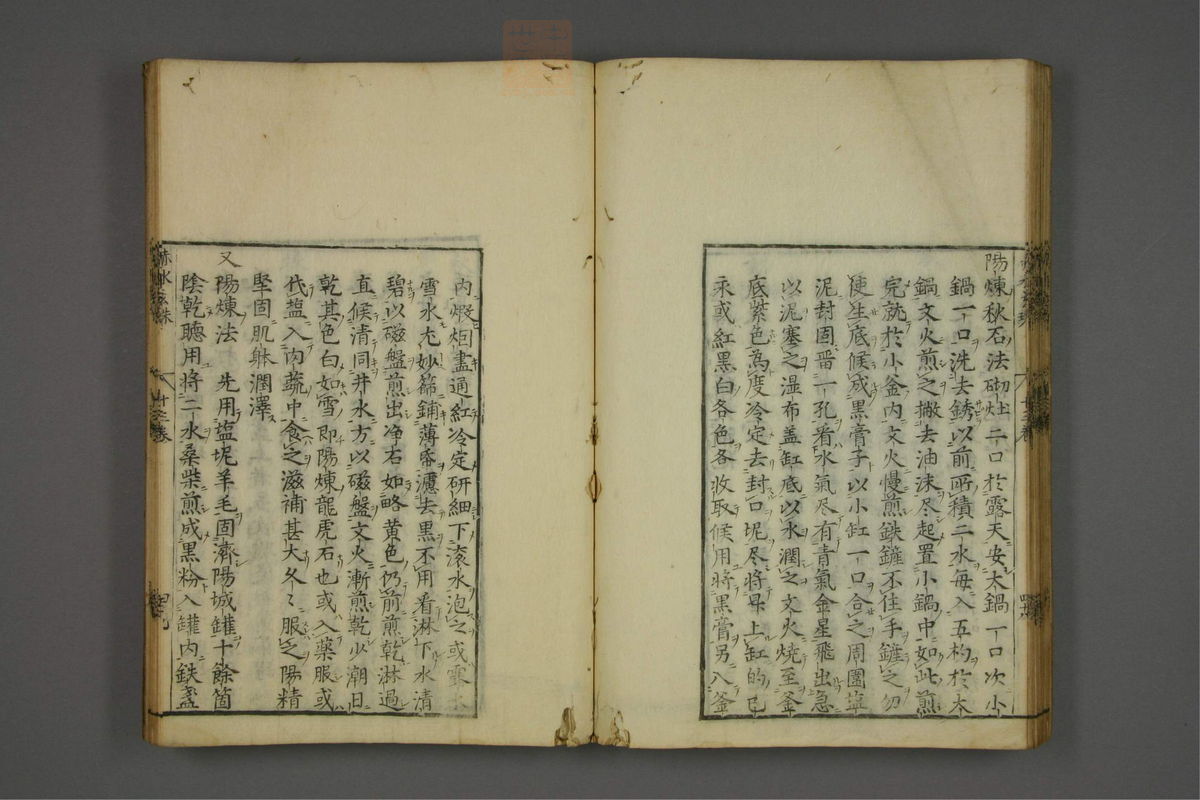 陽煉秋石法砌灶二口於露天安大鍋一口次小
鍋一口洗去銹以前所積二水每入五杓於大
鍋文火煎之撇去油沫尽起置小鍋中如此煎
完就於小釜内文火慢煎鉄鏟不住手鏟之勿
使生底候成黒膏子以小缸一口合之周圍塩
泥封固畱一孔看水氣尽有青氣金星飛出急
以泥塞之湿布盖缸底以水潤之文火焼至釜
底紫色為度冷定去封口坭尽将昇上缸的白
汞或紅黒白各色各收取候用将黒膏另入釜
内煅炬畫通紅冷定研細下滚水泡之或霏
雪水尤妙篩鋪薄香濾去黒不用看淋下水清
碧以磁盤煎出净右如略黄色仍前煎乾淋過
直候清同井水方以磁盤文火漸煎乾少潮日
乾其色白如雪即陽煉龍虎石也或入藥服或
代塩入肉蔬中食之滋補甚大久々服之陽精
堅固肌躰潤澤
又陽煉法 先用塩坭羊毛固濟陽城罐十餘箇
陰乾聴用将二水桑柴煎成黒粉入罐内鉄盞
赤水玄珠 十三卷 四十九